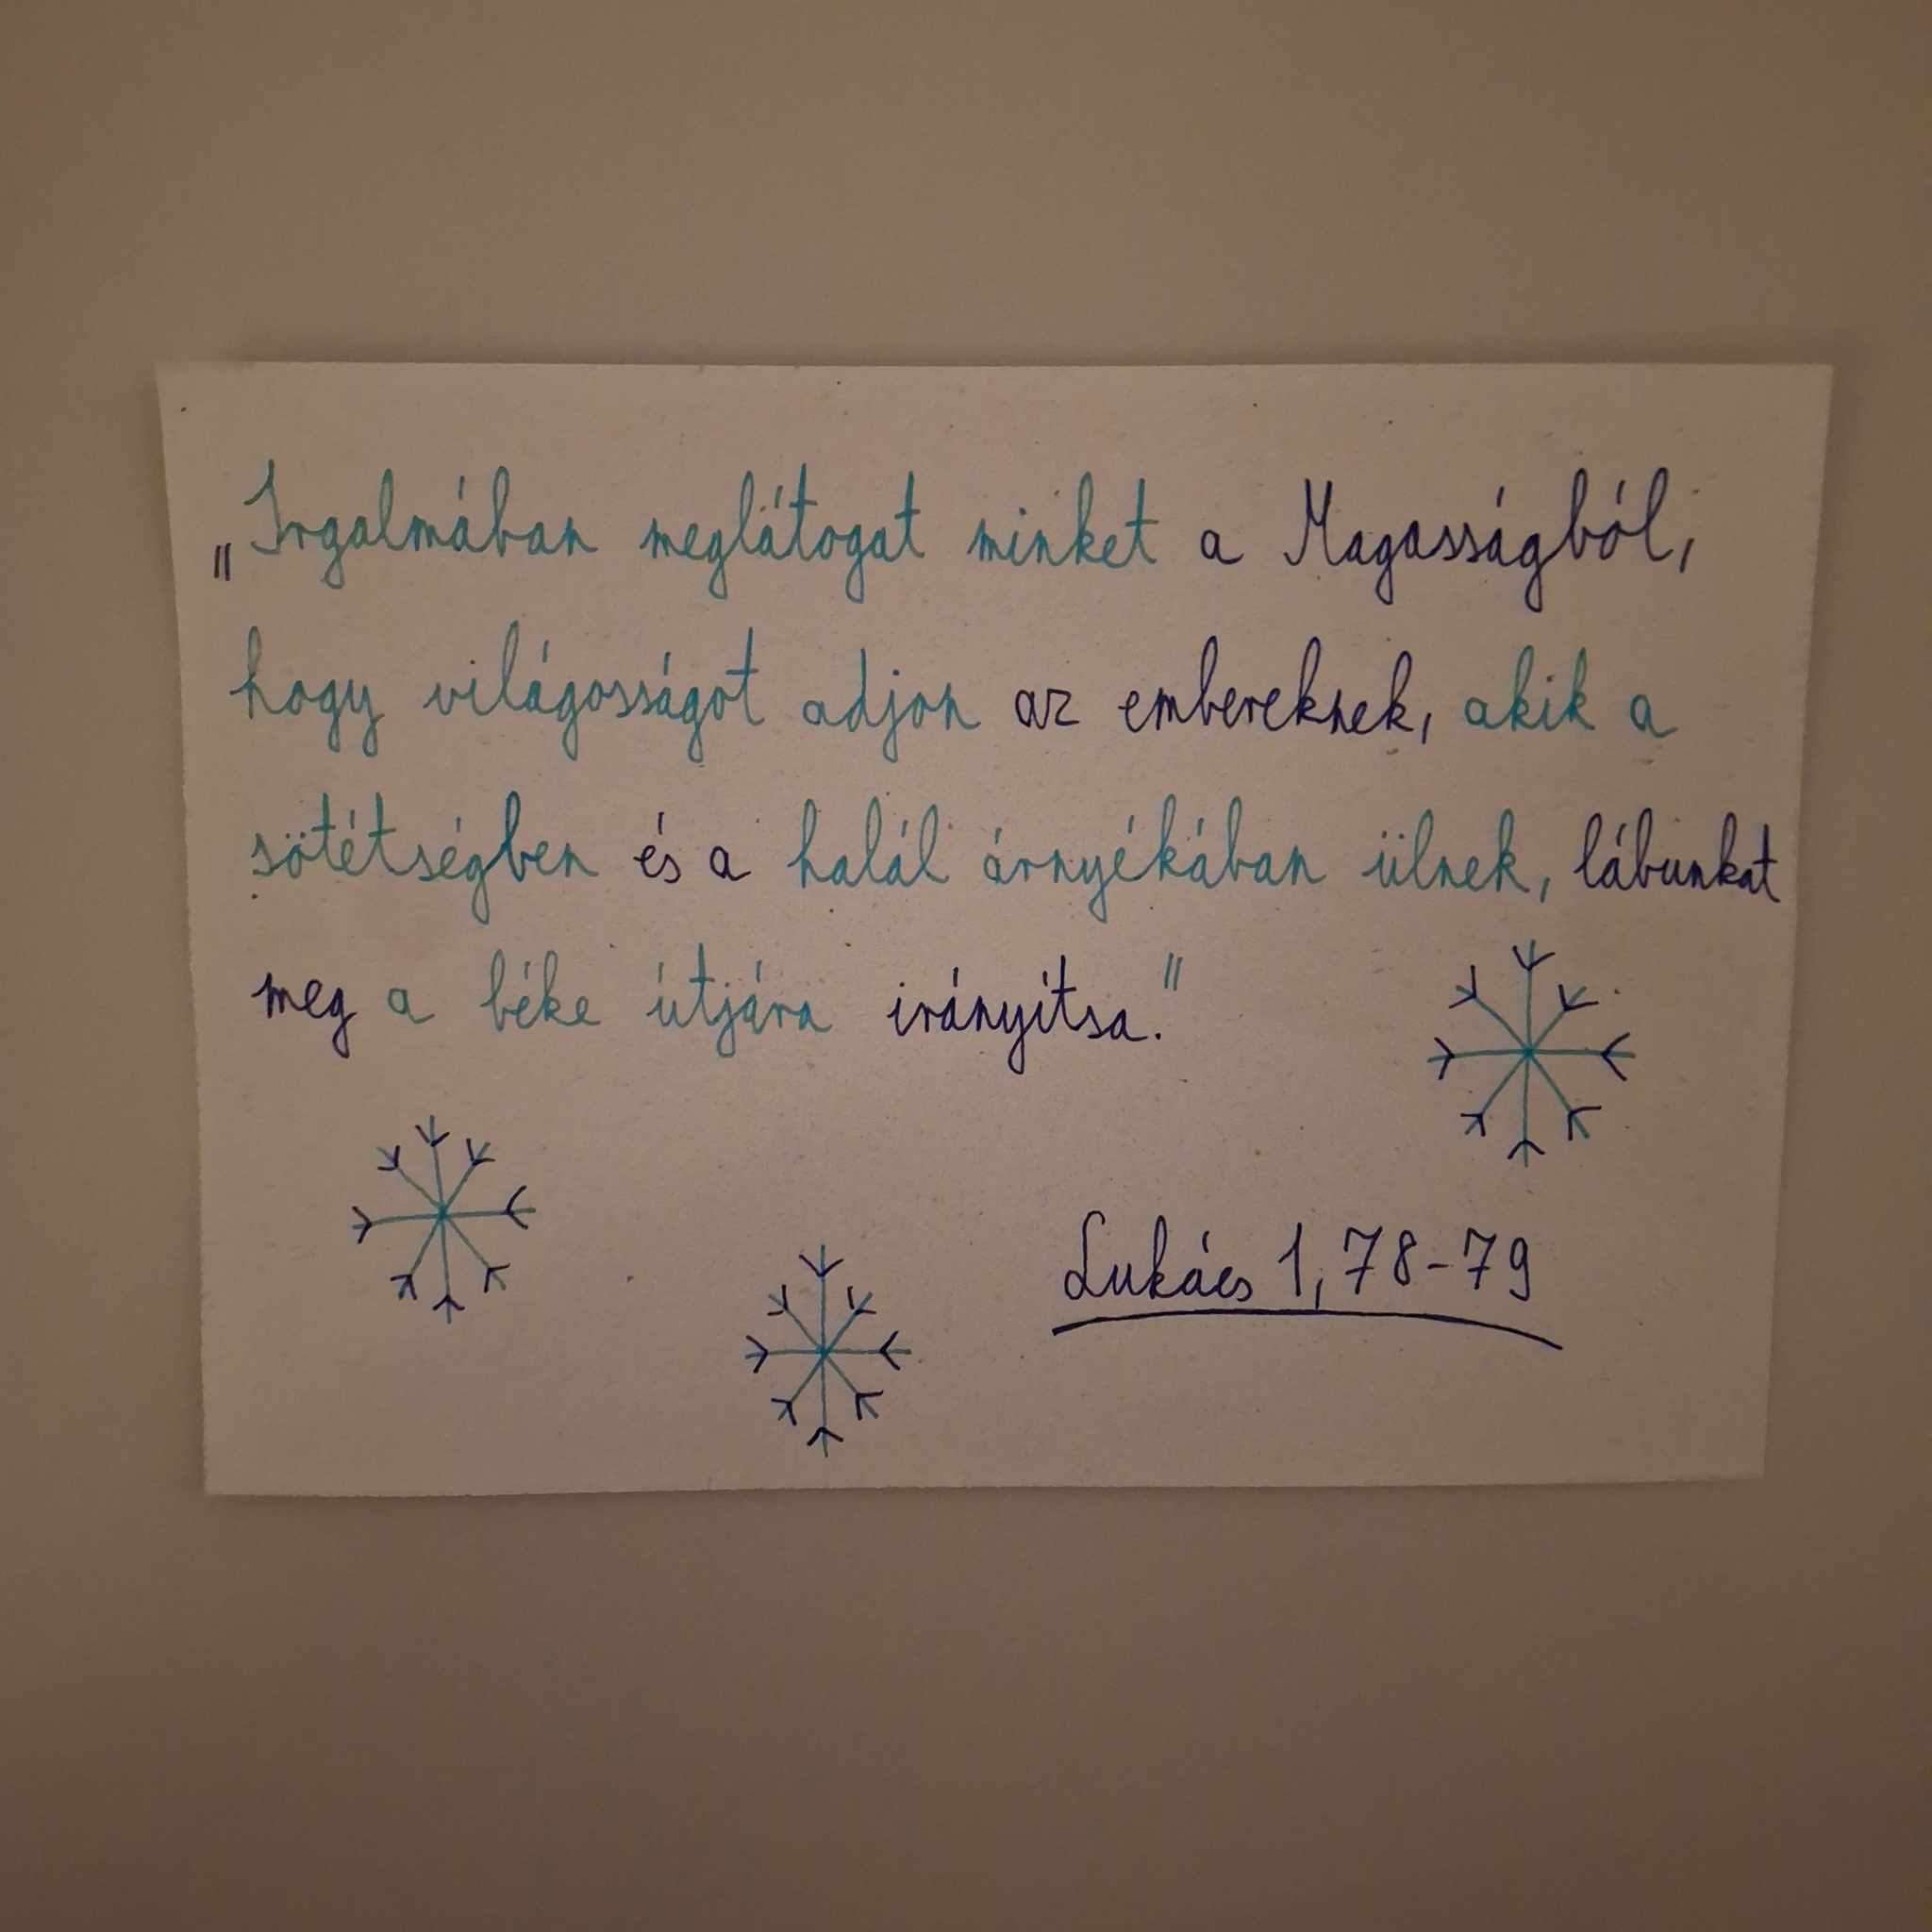 „Irgalmában meglátogat minket a Magasságból,
hogy világosságot adjon az embereknek, akik a
sötétségben és a halál árnyékában ülnek, lábunkat
meg a béke útjára irányítsa."
Lukács 1, 78-79